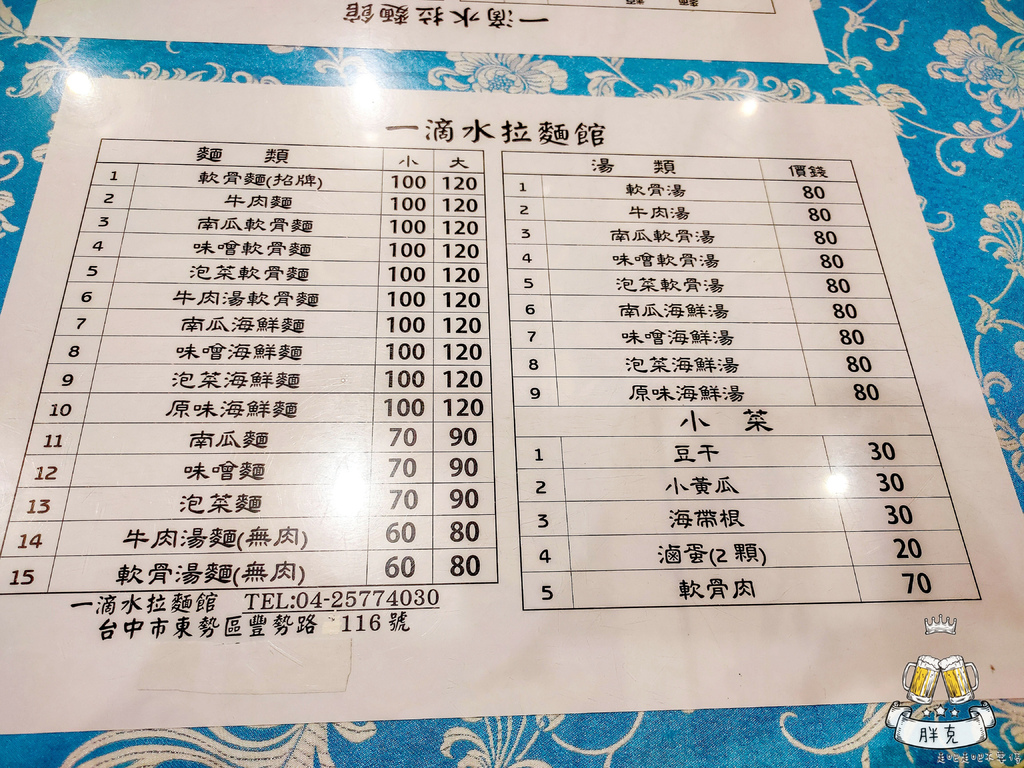 一滴水拉麵館
一滴水拉麵館
麵 類 小 大
1 軟骨麵(招牌) 100 120
2 牛肉麵 100 120
3 南瓜軟骨麵 100 120
4 味噌軟骨麵 100 120
5 泡菜軟骨麵 100 120
6 牛肉湯軟骨麵 100 120
7 南瓜海鮮麵 100 120
8 味噌海鮮麵 100 120
9 泡菜海鮮麵 100 120
10 原味海鮮麵 100 120
11 南瓜麵 70 90
12 味噌麵 70 90
13 泡菜麵 70 90
14 牛肉湯麵(無肉) 60 80
15 軟骨湯麵(無肉) 60 80
一滴水拉麵館 TEL:04-25774030
台中市東勢區豐勢路 116號
湯 類 價錢
1 軟骨湯 80
2 牛肉湯 80
3 南瓜軟骨湯 80
4 味噌軟骨湯 80
5 泡菜軟骨湯 80
6 南瓜海鮮湯 80
7 味噌海鮮湯 80
8 泡菜海鮮湯 80
9 原味海鮮湯 80
小 菜
1 豆干 30
2 小黃瓜 30
3 海帶根 30
4 滷蛋(2顆) 20
5 軟骨肉 70
胖克